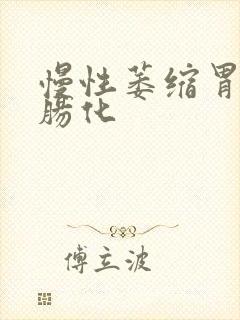 慢性萎缩胃
肠化
傅立波